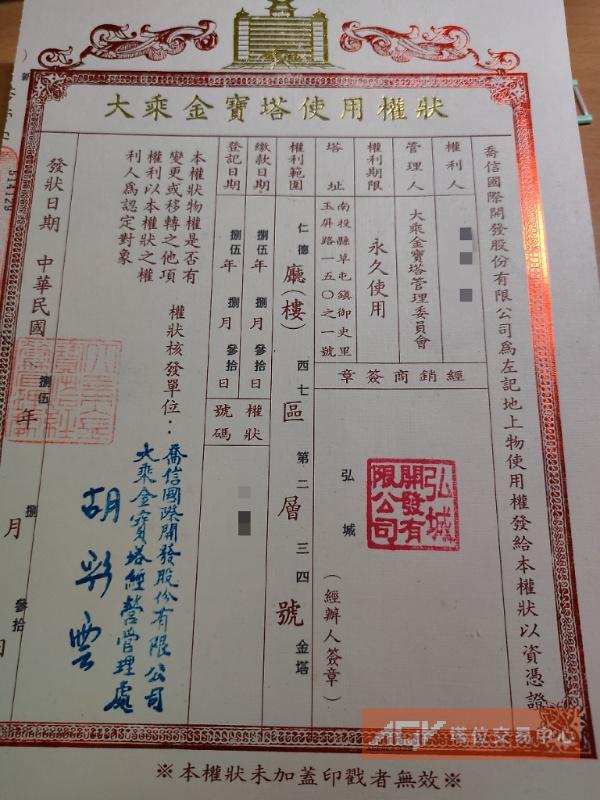 大乘金寶塔使用權狀
喬信國際開發股份有限公司為左記地上物使用權發給本權狀以資憑證
權利人
管理人
大乘金寶塔管理委員會
權利期限
永久使用
塔址
南投縣草屯鎮御史里
玉屏路一五〇之一號
經銷商簽章
弘城
弘城
開發有
限公司
(經辦人簽章)
權利範圍
仁德廳(樓)四七區第二層三四號金塔
繳款日期
捌伍年捌月參拾日
登記日期
捌伍年捌月參拾日
權狀
號碼
本權狀物權是否有
變更或移轉之他項
權利以本權狀之權
利人為認定對象
權狀核發單位:
喬信國際開發股份有限公司
大乘金寶塔經營管理處
胡彩雲
發狀日期 中華民國捌伍年捌月參拾日
514129
※本權狀未加蓋印戳者無效※
塔位交易中心